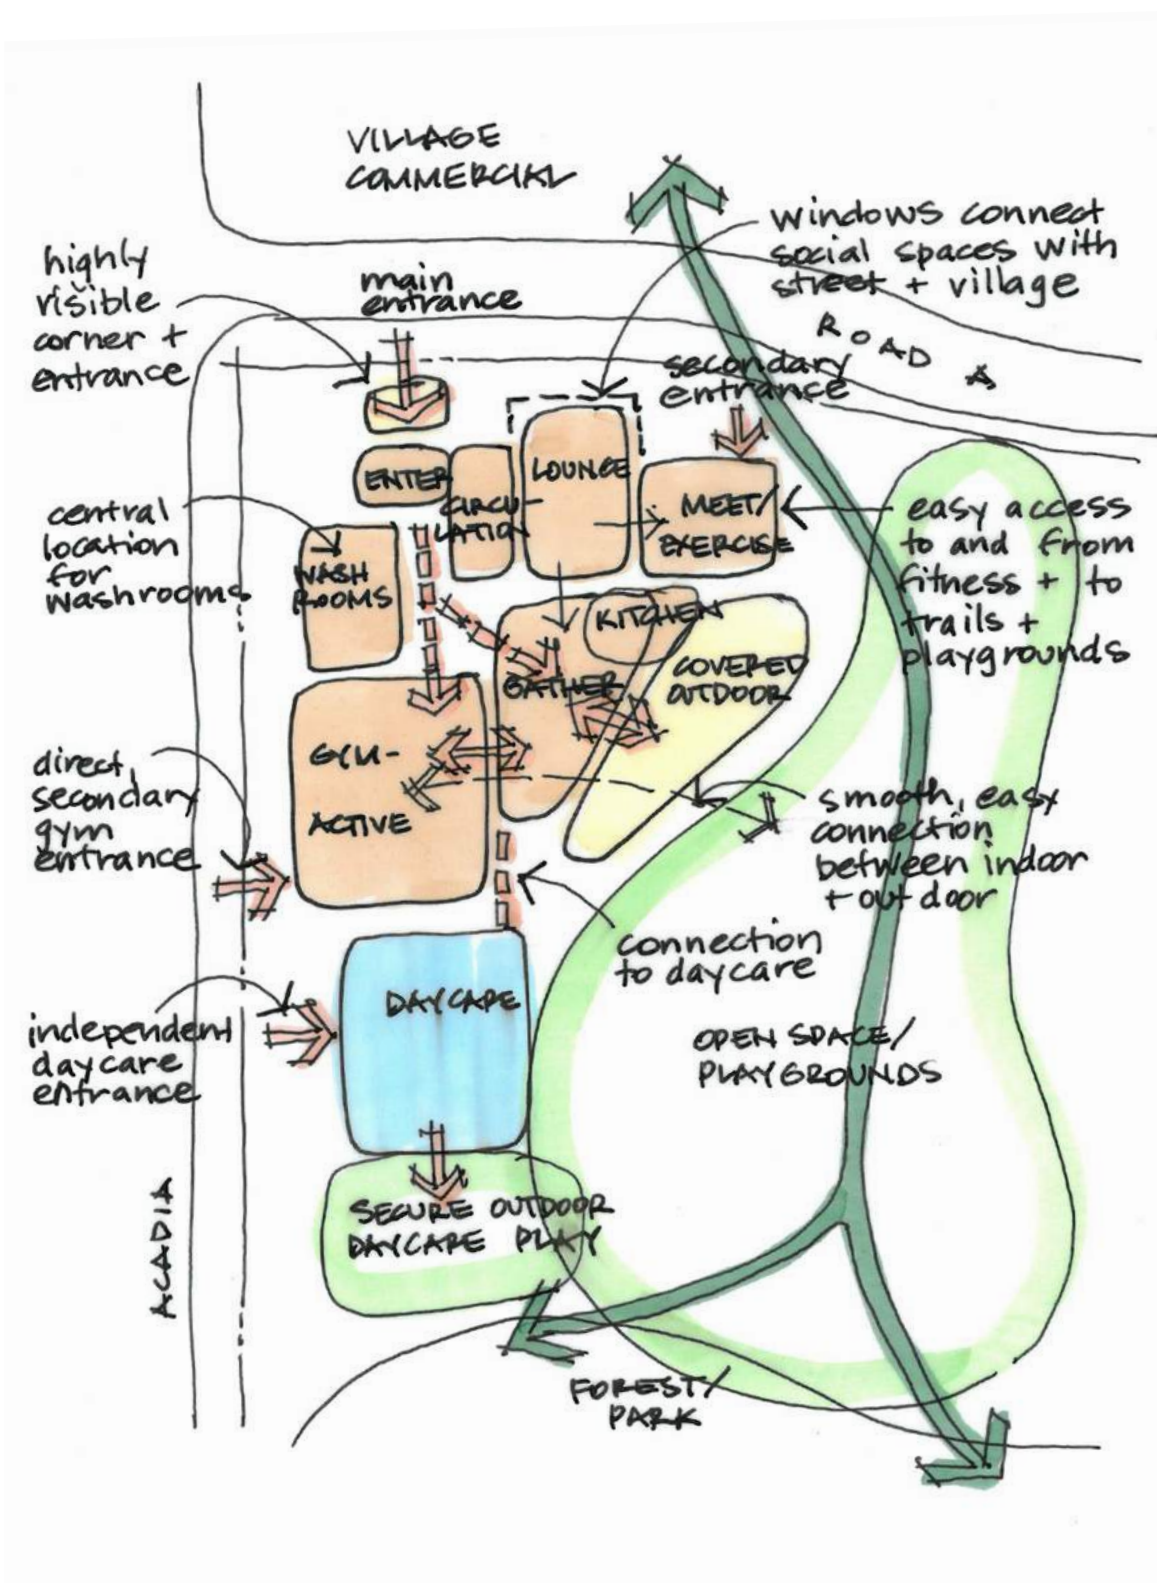 VILLAGE
COMMERCIAL
windows connect
social spaces with
street + village
highly
visible
corner +
entrance
main
entrance
ROAD A
secondary
entrance
ENTER
CIRCU-
LATION
LOUNGE
MEET/
EXERCISE
central
location
for
washrooms
WASH
ROOMS
easy access
to and from
fitness + to
trails +
playgrounds
KITCHEN
GATHER
COVERED
OUTDOOR
GYM-
ACTIVE
direct,
secondary
gym
entrance
smooth, easy
connection
between indoor
+ outdoor
connection
to daycare
DAYCARE
independent
daycare
entrance
OPEN SPACE/
PLAYGROUNDS
SECURE OUTDOOR
DAYCARE PLAY
ACADIA
FOREST/
PARK